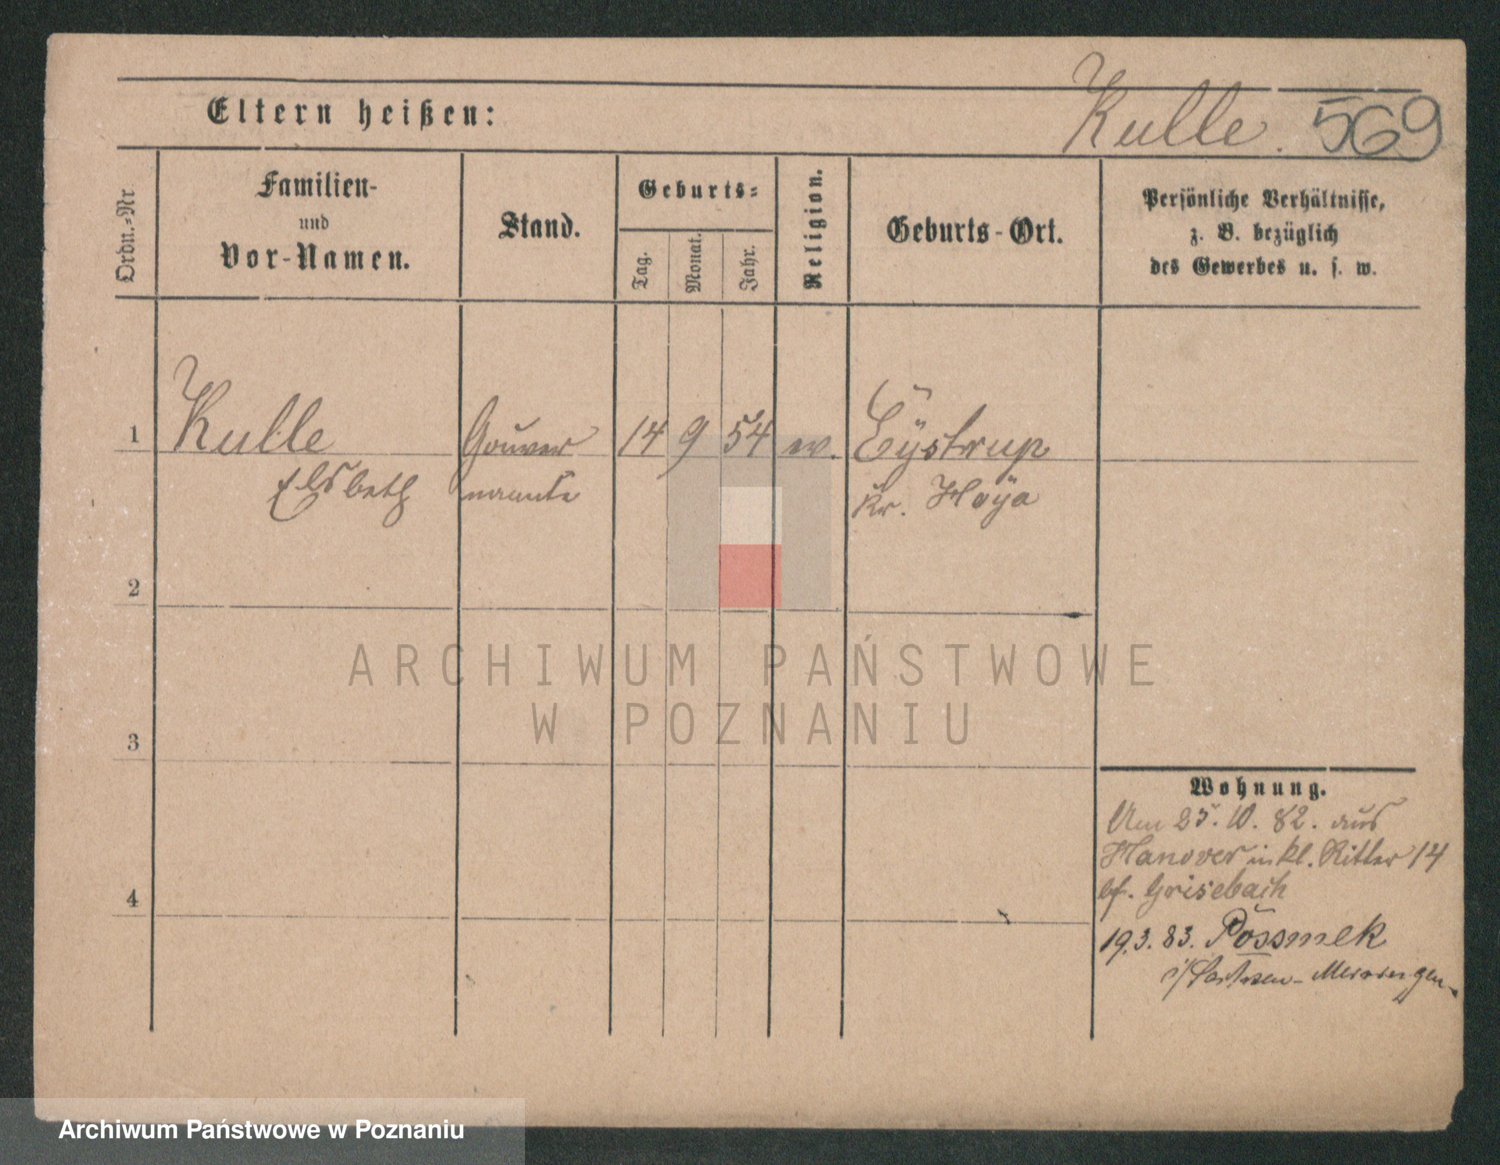 Eltern heißen:
Kulle. 569
Ordn.-Nr
Familien-
und
Vor-Namen.
Stand.
Geburts-
Tag.
Monat.
Jahr.
Religion.
Geburts-Ort.
Persönliche Verhältnisse,
z. B. bezüglich
des Gewerbes u. s. w.
1 Kulle Gouver 14 9 54 ev. Eÿstrup
Elsbeth nannte Kr. Hoÿa
2
ARCHIWUM PAŃSTWOWE
W POZNANIU
3
Wohnung.
Um 25. 10. 82. aus
Hanover in kl. Ritter 14
bf. Grisebach
4
19.3.83. Pössnek
i/Sachsen-Meiningen.
Archiwum Państwowe w Poznaniu